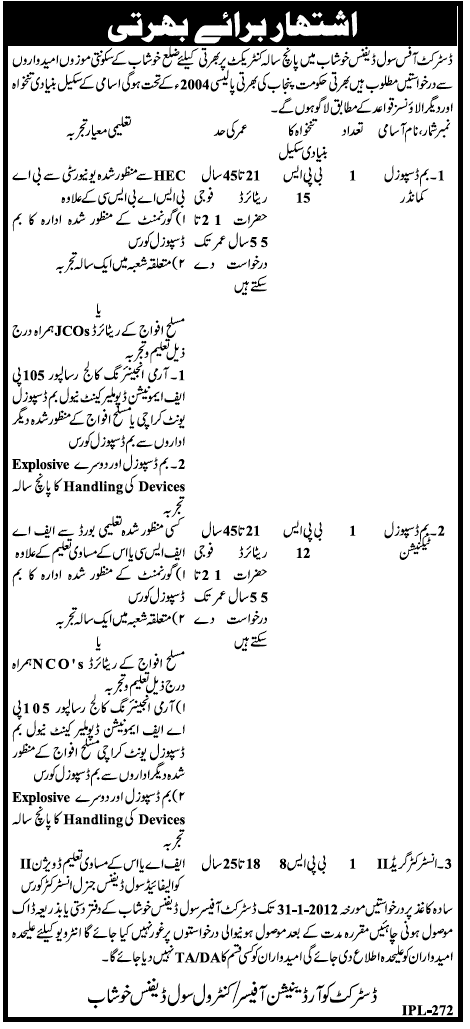 اشتہار برائے بھرتی
ڈسٹرکٹ آفس سول ڈیفنس خوشاب میں پانچ سالہ کنٹریکٹ پر بھرتی کیلئے ضلع خوشاب کے سکونتی موزوں امیدواروں
سے درخواستیں مطلوب ہیں بھرتی حکومت پنجاب کی بھرتی پالیسی 2004ء کے تحت ہوگی اسامی کے سکیل بنیادی تنخواہ
اور دیگر الاؤنسز قواعد کے مطابق لاگو ہوں گے۔
نمبر شمار، نام آسامی تعداد تنخواہ کا بنیادی سکیل عمر کی حد تعلیمی معیار تجربہ
1۔ بم ڈسپوزل 1 بی پی ایس 21 تا 45 سال HEC سے منظور شدہ یونیورسٹی سے بی اے
کمانڈر 15 ریٹائرڈ فوجی بی ایس اے بی ایس سی کے علاوہ
حضرات 21 تا ۱) گورنمنٹ کے منظور شدہ ادارہ کا بم
55 سال عمر تک ڈسپوزل کورس
درخواست دے ۲) متعلقہ شعبہ میں ایک سالہ تجربہ
سکتے ہیں
یا
مسلح افواج کے ریٹائرڈ JCOs ہمراہ درج
ذیل تعلیم و تجربہ
1۔ آرمی انجینئرنگ کالج رسالپور 105 پی
ایف ایمونیشن ڈپو ملیر کینٹ نیول بم ڈسپوزل
یونٹ کراچی یا مسلح افواج کے منظور شدہ دیگر
اداروں سے بم ڈسپوزل کورس
2۔ بم ڈسپوزل اور دوسرے Explosive
Devices کی Handling کا پانچ سالہ
تجربہ
2۔ بم ڈسپوزل 1 بی پی ایس 21 تا 45 سال کسی منظور شدہ تعلیمی بورڈ سے ایف اے
ٹیکنیشن 12 ریٹائرڈ فوجی ایف ایس سی یا اس کے مساوی تعلیم کے علاوہ
حضرات 21 تا ۱) گورنمنٹ کے منظور شدہ ادارہ کا بم
55 سال عمر تک ڈسپوزل کورس
درخواست دے ۲) متعلقہ شعبہ میں ایک سالہ تجربہ
سکتے ہیں یا
مسلح افواج کے ریٹائرڈ NCO's ہمراہ
درج ذیل تعلیم و تجربہ
۱) آرمی انجینئرنگ کالج رسالپور 105 پی
اے ایف ایمونیشن ڈپو ملیر کینٹ نیول بم
ڈسپوزل یونٹ کراچی مسلح افواج کے منظور
شدہ دیگر اداروں سے بم ڈسپوزل کورس
۲) بم ڈسپوزل اور دوسرے Explosive
Devices کی Handling کا پانچ سالہ
تجربہ
3۔ انسٹرکٹر گریڈ II 1 بی پی ایس 8 18 تا 25 سال ایف اے یا اس کے مساوی تعلیم ڈویژن II
کوالیفائیڈ سول ڈیفنس جنرل انسٹرکٹر کورس
سادہ کاغذ پر درخواستیں مورخہ 31-1-2012 تک ڈسٹرکٹ آفیسر سول ڈیفنس خوشاب کے دفتر دستی یا بذریعہ ڈاک
موصول ہونی چاہئیں مقررہ مدت کے بعد موصول ہونیوالی درخواستوں پر غور نہیں کیا جائے گا انٹرویو کیلئے علیحدہ
امیدواران کو علیحدہ اطلاع دی جائے گی امیدواران کو کسی قسم کا TA/DA نہیں دیا جائے گا۔
ڈسٹرکٹ کوآرڈینیشن آفیسر/کنٹرولر سول ڈیفنس خوشاب
IPL-272